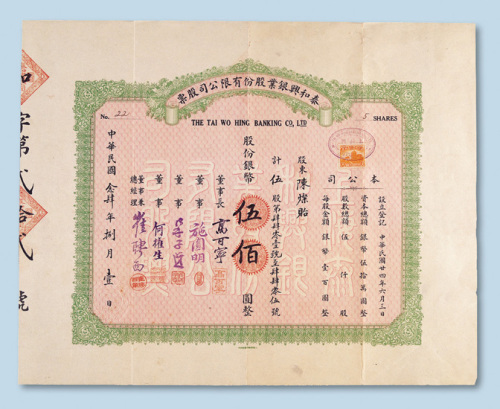 泰和興銀業股份有限公司股票
No. 22
5 SHARES
THE TAI WO HING BANKING CO, LTD
本公司
設立登記 中華民國廿四年六月三日
資本總額 銀幣 伍拾萬圓整
股數總額 伍仟股
每股金額 銀幣 壹百圓整
股東 陳燦貽
計 伍 股第肆肆叁壹號至肆肆叁伍號
股份銀幣 伍佰 圓整
董事長 高甘寧
董事 施圓明
董事
董事 何維生
董事兼總經理
中華民國 叁肆年 捌月 壹日
和字第貳拾貳號